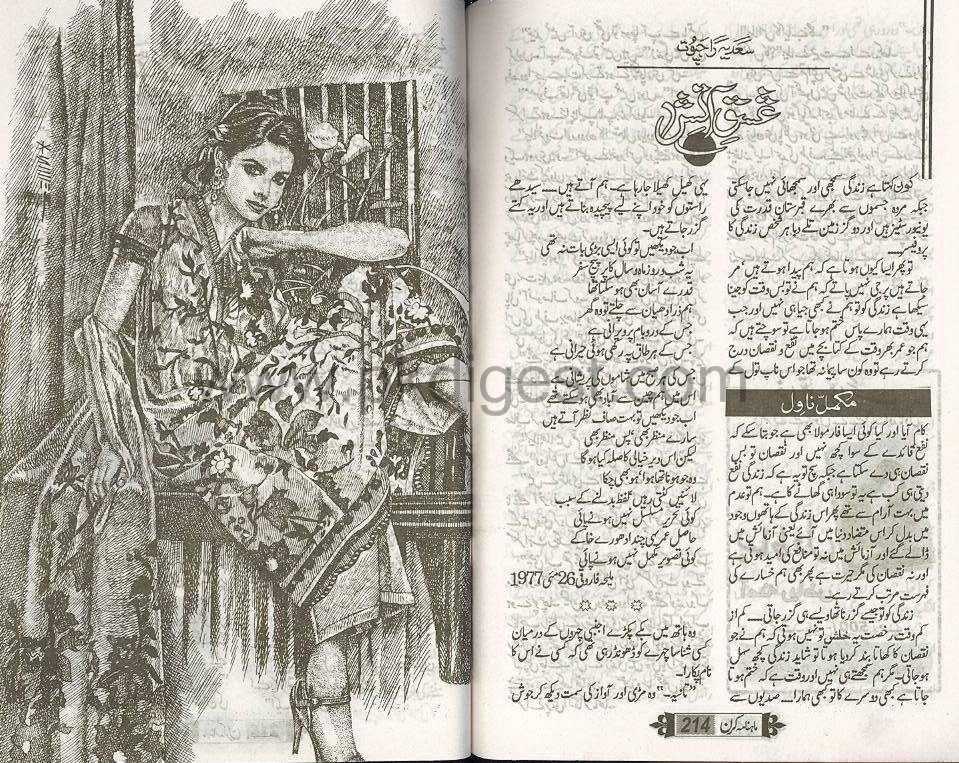 سعدیہ راجپوت
عشق آتش
کون کہتا ہے زندگی سمجھی اور سمجھائی نہیں جا سکتی
جبکہ مردہ جسموں سے بھرے قبرستان قدرت کی
یونیورسٹیز ہیں اور دو گز زمین تلے دبا ہر شخص زندگی کا
پروفیسر۔
تو پھر ایسا کیوں ہوتا ہے کہ ہم پیدا ہوتے ہیں‘ مر
جاتے ہیں پر جی نہیں پاتے کہ ہم نے تو بس وقت کو جینا
سیکھا ہے زندگی کو تو ہم نے کبھی جیا ہی نہیں اور جب
یہی وقت ہمارے پاس ختم ہو جاتا ہے تو سوچتے ہیں کہ
ہم جو عمر بھر وقت کے کھاتے میں نفع و نقصان درج
کرتے رہے تو وہ کون سا پیمانہ تھا جو اس ناپ تول میں
مکمل ناول
کام آیا اور کیا کوئی ایسا فارمولا بھی ہے جو بتا سکے کہ
نفع فائدے کے سوا کچھ نہیں اور نقصان تو بس
نقصان ہی دے سکتا ہے جبکہ سچ تو یہ ہے کہ زندگی نفع
دیتی ہی کب ہے یہ تو سودا ہی گھاٹے کا ہے۔ ہم تو عدم
میں بہت آرام سے تھے پھر اس زندگی کے ہاتھوں وجود
میں بدل کر اس متضاد دنیا میں آئے یعنی آزمائش میں
ڈالے گئے اور آزمائش میں نہ تو منافع کی امید ہوتی ہے
اور نہ نقصان کی مگر حیرت ہے پھر بھی ہم خسارے کی
فہرست مرتب کرتے رہے۔
زندگی کو تو جیسے گزرنا تھا ویسے ہی گزر جاتی۔۔۔ کم از
کم وقت رخصت یہ خلش تو نہیں ہوتی کہ ہم نے جو
نقصان کا کھاتا بند کر دیا ہوتا تو شاید زندگی کچھ سہل
ہو جاتی۔ مگر ہم سمجھتے ہی نہیں اور وقت ہے کہ ختم ہوتا
جاتا ہے کبھی دوسرے کا تو کبھی ہمارا۔۔۔ صدیوں سے
یہی کھیل کھیلا جا رہا ہے۔ ہم آتے ہیں۔۔۔ سیدھے
راستوں کو خود اپنے لیے پیچیدہ بناتے ہیں اور یہ کہتے
گزر جاتے ہیں۔
اب جو دیکھیں تو کوئی ایسی بڑی بات نہ تھی
یہ شب و روز و ماہ و سال کا پر پیچ سفر
قدرے آسان بھی ہو سکتا تھا
ہم ذرا دھیان سے چلتے تو وہ گھر
جس کے در و بام پہ ویرانی ہے
جس کے ہر طاق پہ رکھی ہوئی حیرانی ہے
جس کی ہر صبح میں شاموں کی پریشانی ہے
اس میں ہم چین سے آباد بھی ہو سکتے تھے
اب جو دیکھیں تو بہت صاف نظر آتے ہیں
سارے منظر بھی‘ پس منظر بھی
لیکن اس دیر خیالی کا صلہ کیا ہو گا
وہ جو ہونا تھا ہوا‘ ہو بھی چکا
لائنیں کٹتی رہیں لفظ بدلنے کے سبب
کوئی تحریر مسلسل نہیں ہونے پائی
حاصل عمر یہی چند ادھورے خاکے
کوئی تصویر مکمل نہیں ہونے پائی
ملیحہ فاروقی 26 مئی 1977
وہ ہاتھ میں بکے پکڑے اجنبی چہروں کے درمیان
کسی شناسا چہرے کو ڈھونڈ رہی تھی کہ کسی نے اس کا
نام پکارا۔
وہ مڑی اور آواز کی سمت دیکھ کر جوش
ماہنامہ کرن 214
www.pkdigest.com